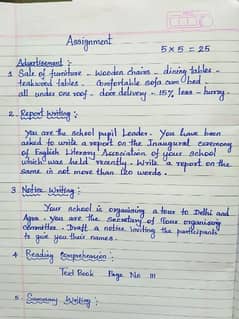 Assignment
5 x 5 = 25
Advertisement :
1 Sale of furniture - Wooden chairs - dining tables -
teakwood tables - Comfortable sofa cum bed -
all under one roof - door delivery - 15% less - hurry.
2. Report Writing :
You are the school pupil Leader. You have been
asked to write a report on the Inaugural ceremony
of English Literary Association of your school
which was held recently. Write a report on the
same in not more than 120 words.
3 Notice Writing :
Your school is organising a tour to Delhi and
Agra. You are the secretary of Tour organising
committee. Draft a notice inviting the participants
to give you their names.
4 Reading Comprehension :
Text Book Page No 111
5 Summary Writing :